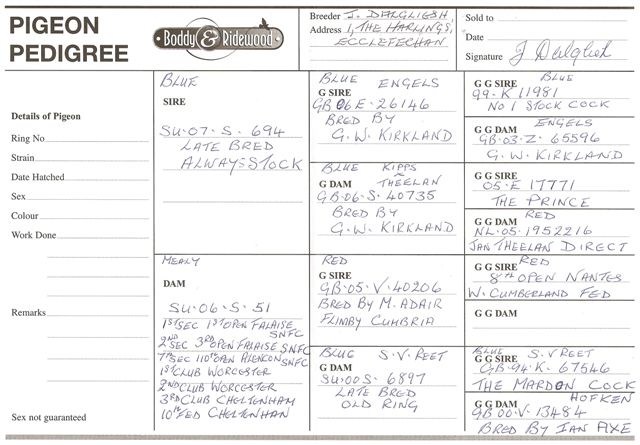 PIGEON
PEDIGREE
Boddy & Ridewood
Breeder J. DALGLIESH
Address 1, THE HARLINGS,
ECCLEFECHAN
Sold to
Date
Signature J Dalgliesh
Details of Pigeon
Ring No
Strain
Date Hatched
Sex
Colour
Work Done
Remarks
Sex not guaranteed
BLUE
SIRE
SU-07-S-694
LATE BRED
ALWAYS STOCK
MEALY
DAM
SU-06-S-51
1st SEC 1st OPEN FALAISE SNFC
2ND SEC 3RD OPEN FALAISE SNFC
7th SEC 110th OPEN ALENCON SNFC
1st CLUB WORCESTER
2ND CLUB WORCESTER
3RD CLUB CHELTENHAM
10th FED CHELTENHAM
BLUE ENGELS
G SIRE
GB 06 E-26146
BRED BY
G. W. KIRKLAND
BLUE KIPPS
THEELAN
G DAM
GB-06-S-40735
BRED BY
G. W. KIRKLAND
RED
G SIRE
GB-05-V-40206
BRED BY M. ADAIR
FLIMBY CUMBRIA
BLUE S.V REET
G DAM
SU-00S-6897
LATE BRED
OLD RING
BLUE
G G SIRE
99-K 11981
NO 1 STOCK COCK
ENGELS
G G DAM
GB-03-Z-65596
G. W. KIRKLAND
G G SIRE
05-E 17771
THE PRINCE
RED
G G DAM
NL-05-1952216
JAN THEELAN DIRECT
RED
G G SIRE
8th OPEN NANTES
W. CUMBERLAND FED
G G DAM
BLUE S.V REET
G G SIRE
GB-94-K-67546
THE MARDON COCK
HOFKEN
G G DAM
GB 00-V-13484
BRED BY IAN AXE